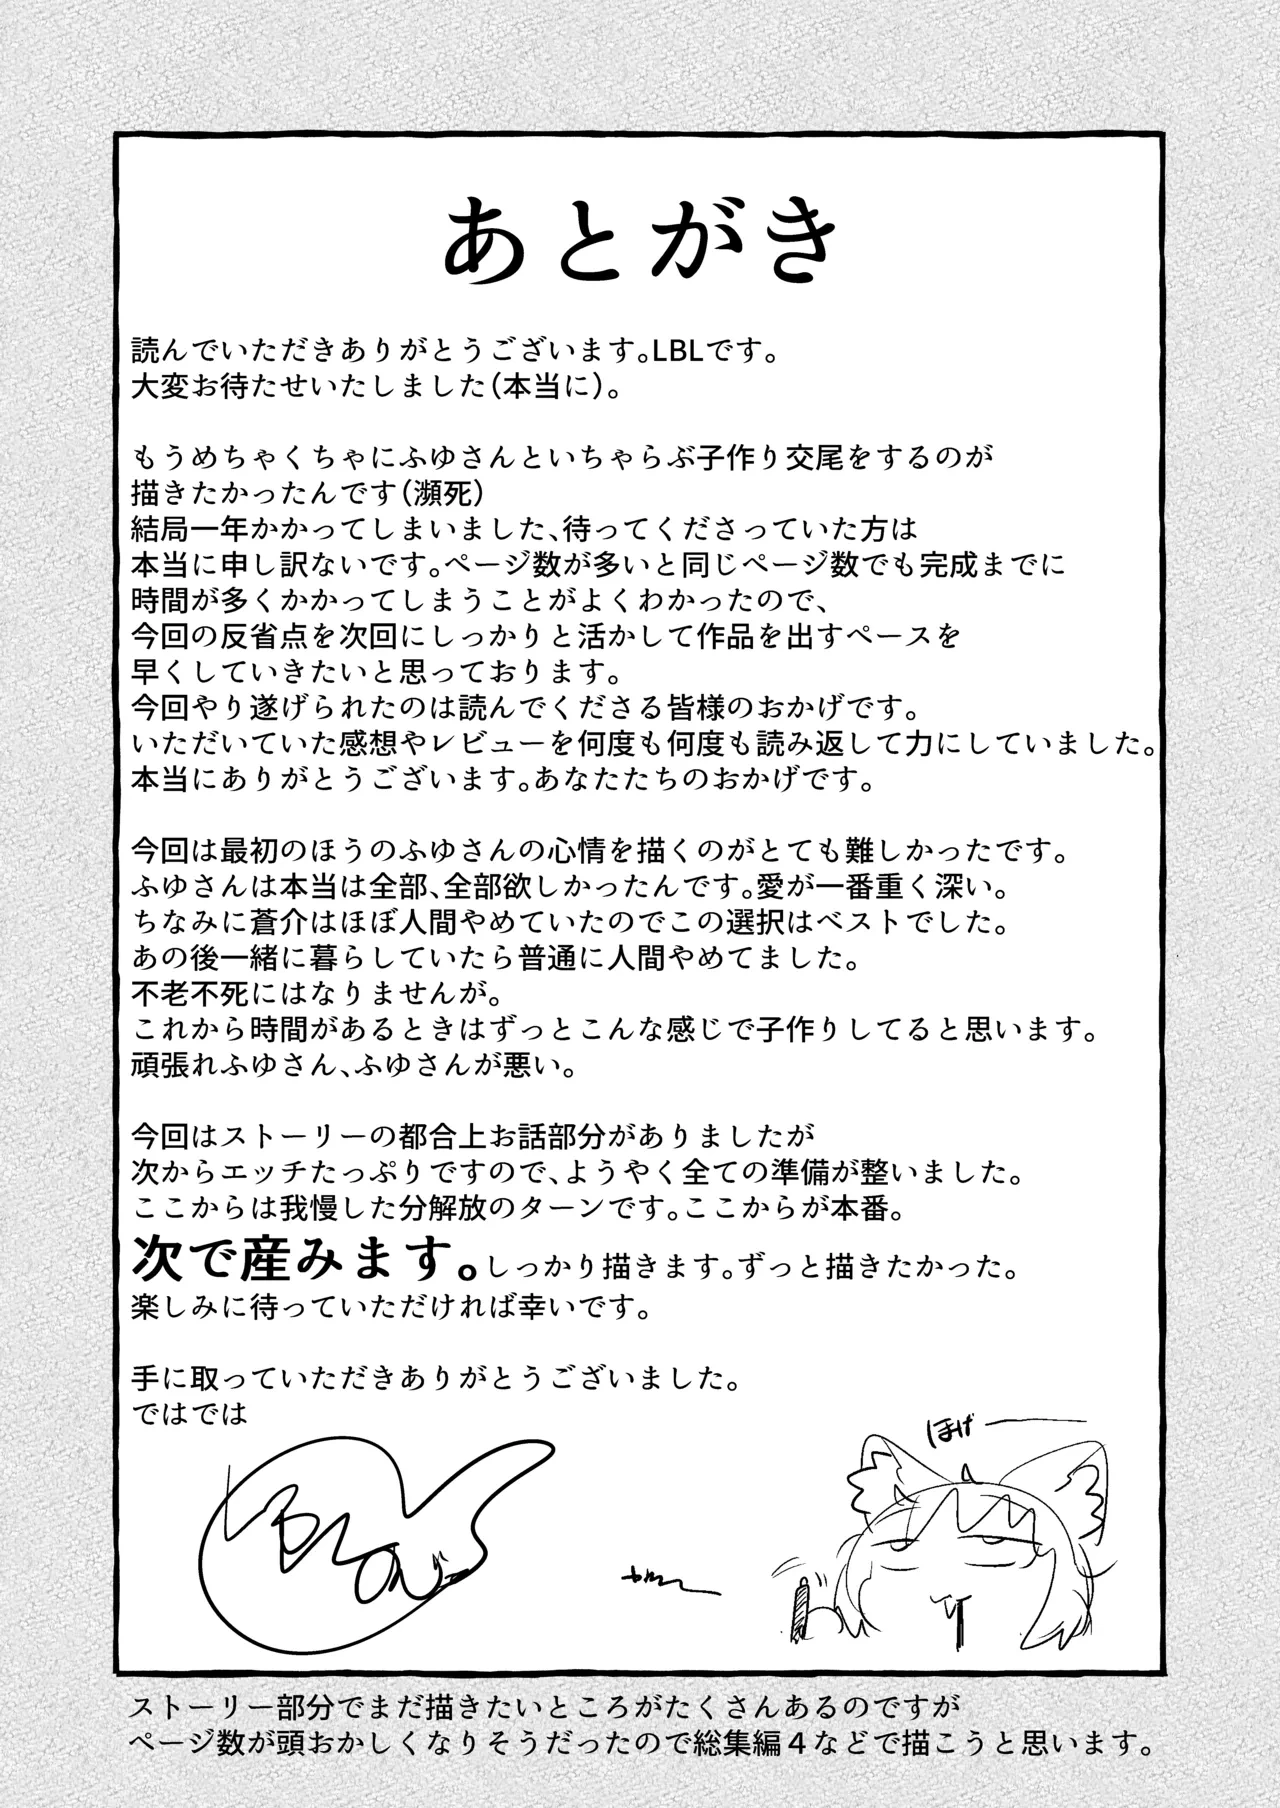 あとがき
読んでいただきありがとうございます。LBLです。
大変お待たせいたしました(本当に)。
もうめちゃくちゃにふゆさんといちゃらぶ子作り交尾をするのが
描きたかったんです(瀕死)
結局一年かかってしまいました、待ってくださっていた方は
本当に申し訳ないです。ページ数が多いと同じページ数でも完成までに
時間が多くかかってしまうことがよくわかったので、
今回の反省点を次回にしっかりと活かして作品を出すペースを
早くしていきたいと思っております。
今回やり遂げられたのは読んでくださる皆様のおかげです。
いただいていた感想やレビューを何度も何度も読み返して力にしていました。
本当にありがとうございます。あなたたちのおかげです。
今回は最初のほうのふゆさんの心情を描くのがとても難しかったです。
ふゆさんは本当は全部、全部欲しかったんです。愛が一番重く深い。
ちなみに蒼介はほぼ人間やめていたのでこの選択はベストでした。
あの後一緒に暮らしていたら普通に人間やめてました。
不老不死にはなりませんが。
これから時間があるときはずっとこんな感じで子作りしてると思います。
頑張れふゆさん、ふゆさんが悪い。
今回はストーリーの都合上お話部分がありましたが
次からエッチたっぷりですので、ようやく全ての準備が整いました。
ここからは我慢した分解放のターンです。ここからが本番。
次で産みます。しっかり描きます。ずっと描きたかった。
楽しみに待っていただければ幸いです。
手に取っていただきありがとうございました。
ではでは
ほげー
LBL
ストーリー部分でまだ描きたいところがたくさんあるのですが
ページ数が頭おかしくなりそうだったので総集編４などで描こうと思います。